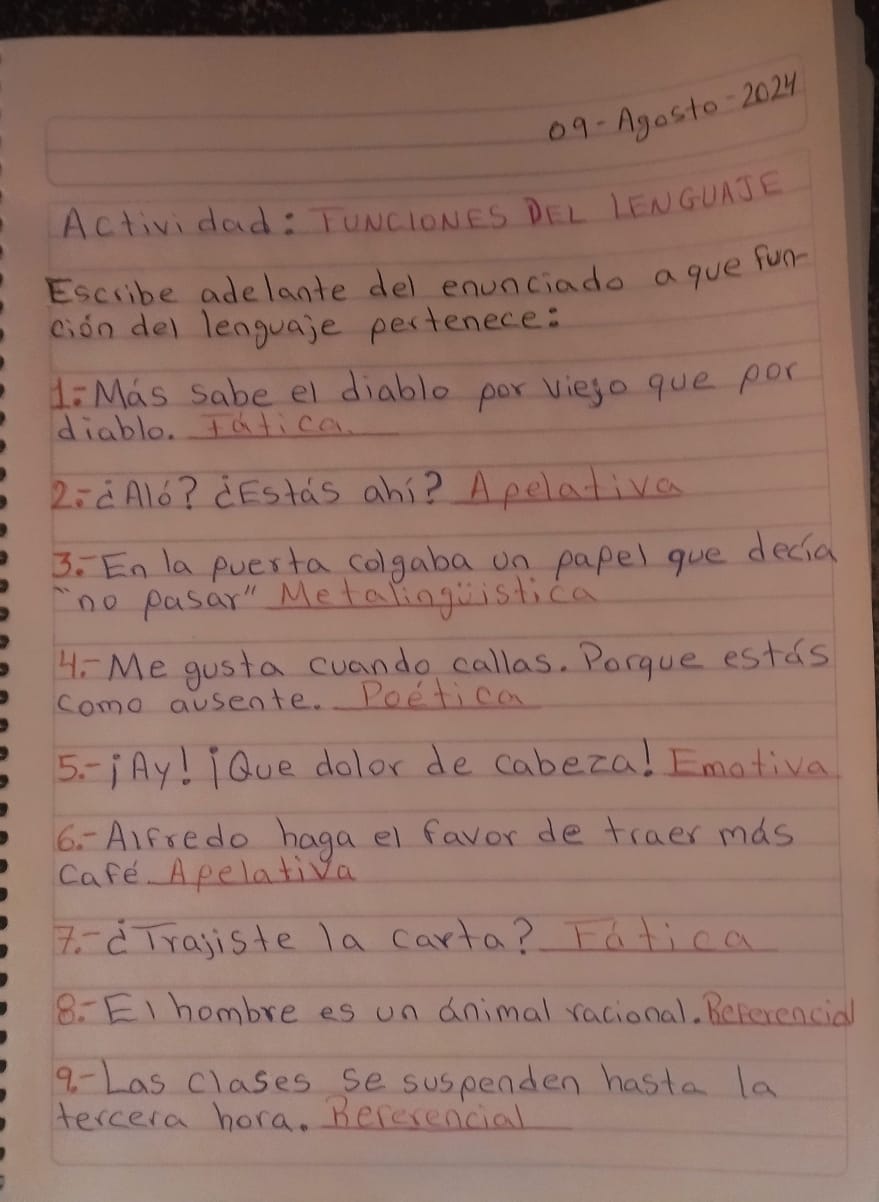 09-Agosto-2024
Actividad: FUNCIONES DEL LENGUAJE
Escribe adelante del enunciado a que fun-
ción del lenguaje pertenece:
1.- Más sabe el diablo por viejo que por
diablo. Fática.
2.- ¿Aló? ¿Estás ahí? Apelativa
3.- En la puerta colgaba un papel que decía
"no pasar" Metalingüistica
4.- Me gusta cuando callas. Porque estás
como ausente. Poética
5.- ¡Ay! ¡Que dolor de cabeza! Emotiva
6.- Alfredo haga el favor de traer más
café Apelativa
7.- ¿Trajiste la carta? Fática
8.- El hombre es un ánimal racional. Referencial
9.- Las clases se suspenden hasta la
tercera hora. Referencial